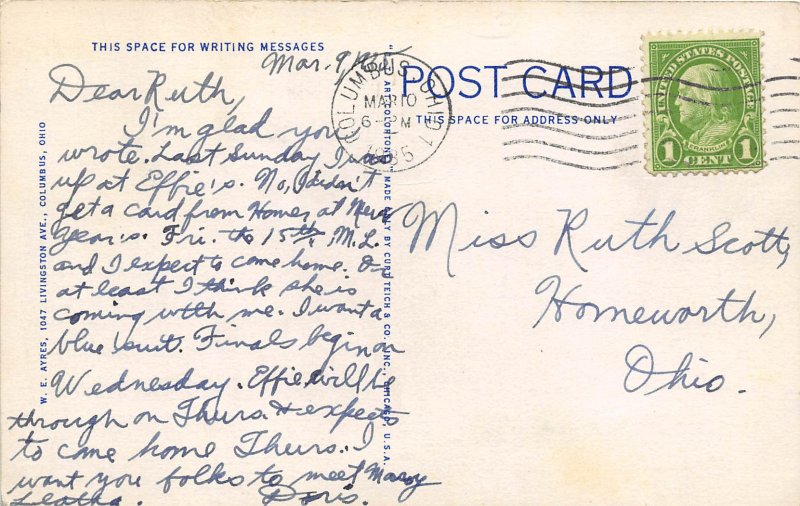 THIS SPACE FOR WRITING MESSAGES
Mar. 9, 1935
Dear Ruth,
I'm glad you
wrote. Last Sunday I was
up at Effie's. No, I didn't
get a card from Homer at New
Year's. Fri. the 15th, M.L.
and I expect to come home. Or
at least I think she is
coming with me. I want a
blue suit. Finals begin on
Wednesday. Effie will be
through on Thurs. & expects
to come home Thurs. I
want you folks to meet Mary
Leatha. Doris.
W. E. AYRES, 1047 LIVINGSTON AVE., COLUMBUS, OHIO
"C. T. ART-COLORTONE" MADE ONLY BY CURT TEICH & CO., INC., CHICAGO, U.S.A.
POST CARD
THIS SPACE FOR ADDRESS ONLY
COLUMBUS, OHIO 1
MAR 10
6-PM
1935
UNITED STATES POSTAGE
FRANKLIN
1 CENT 1
Miss Ruth Scott,
Homeworth,
Ohio.